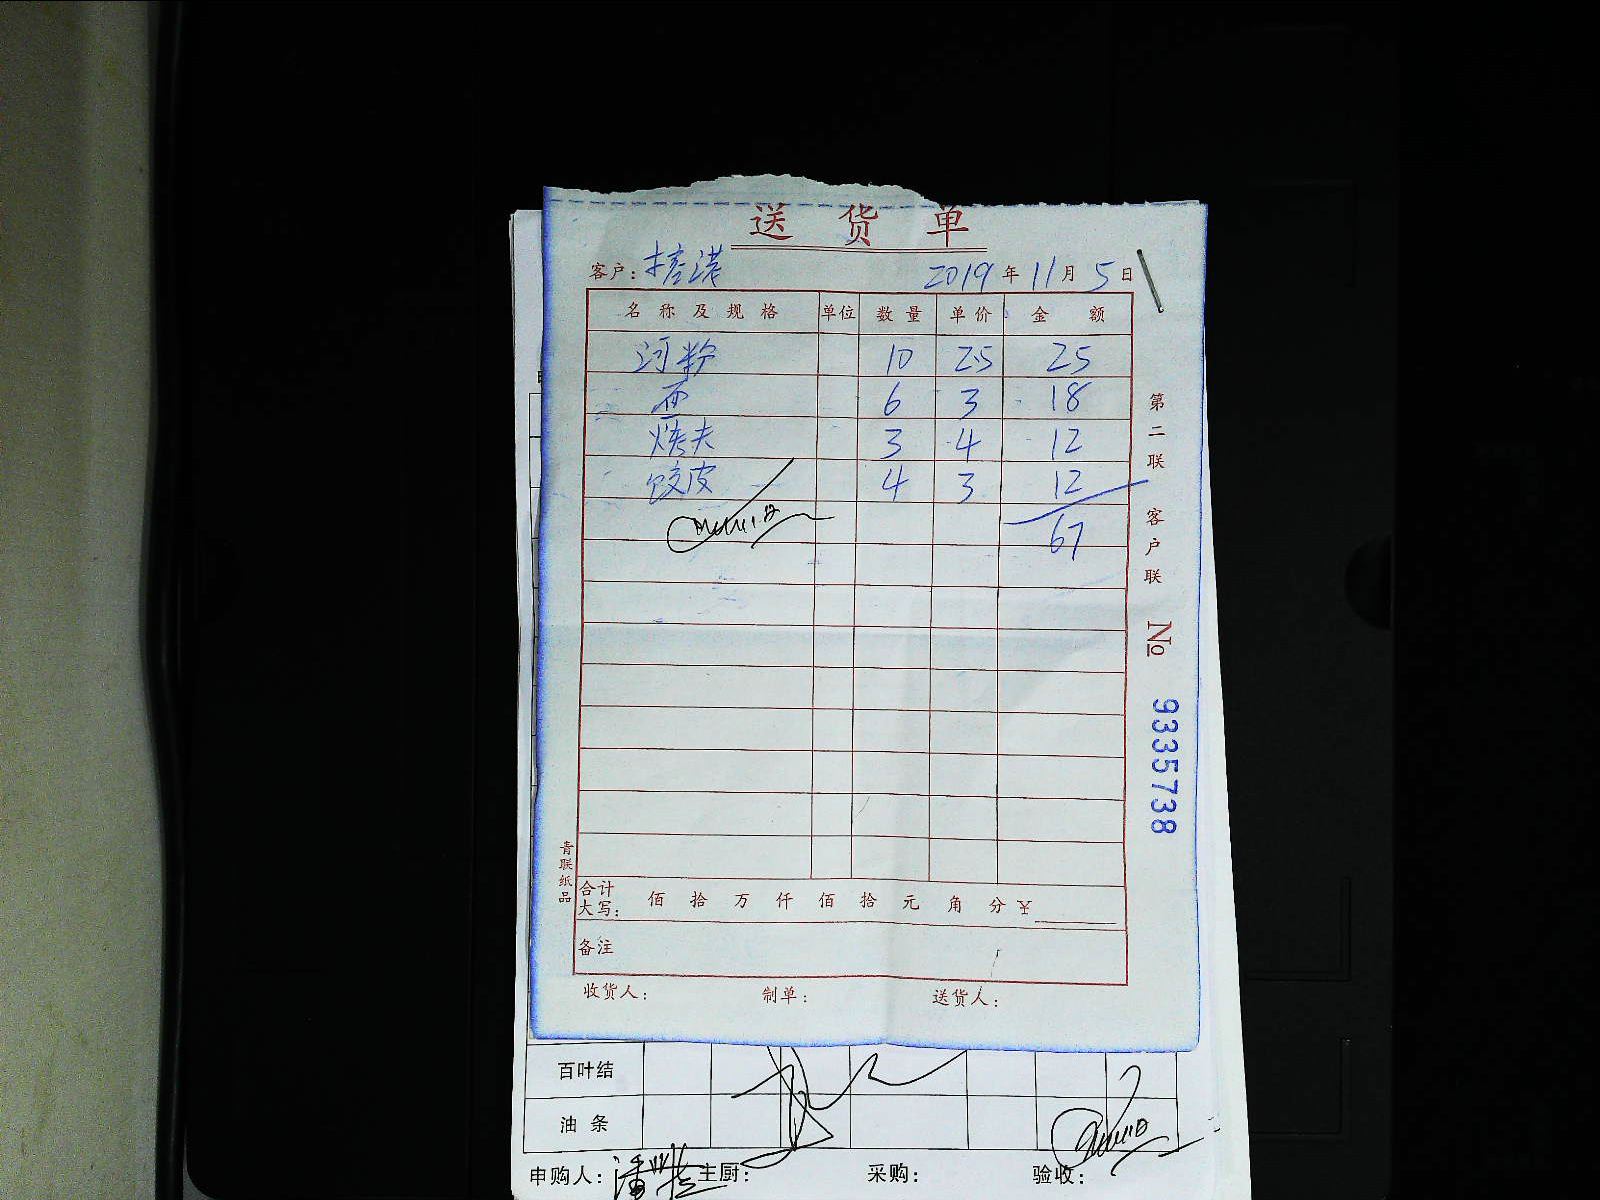 送货单
客户： 2019年11月5日
名称及规格 单位 数量 单价 金额
河粉 10 2.5 25
面 6 3 18
烤夫 3 4 12
饺皮 4 3 12
67
第二联 客户联
№ 9335738
青联纸品
合计大写： 佰 拾 万 仟 佰 拾 元 角 分 ¥
备注
收货人： 制单： 送货人：
百叶结
油条
申购人： 主厨： 采购： 验收：